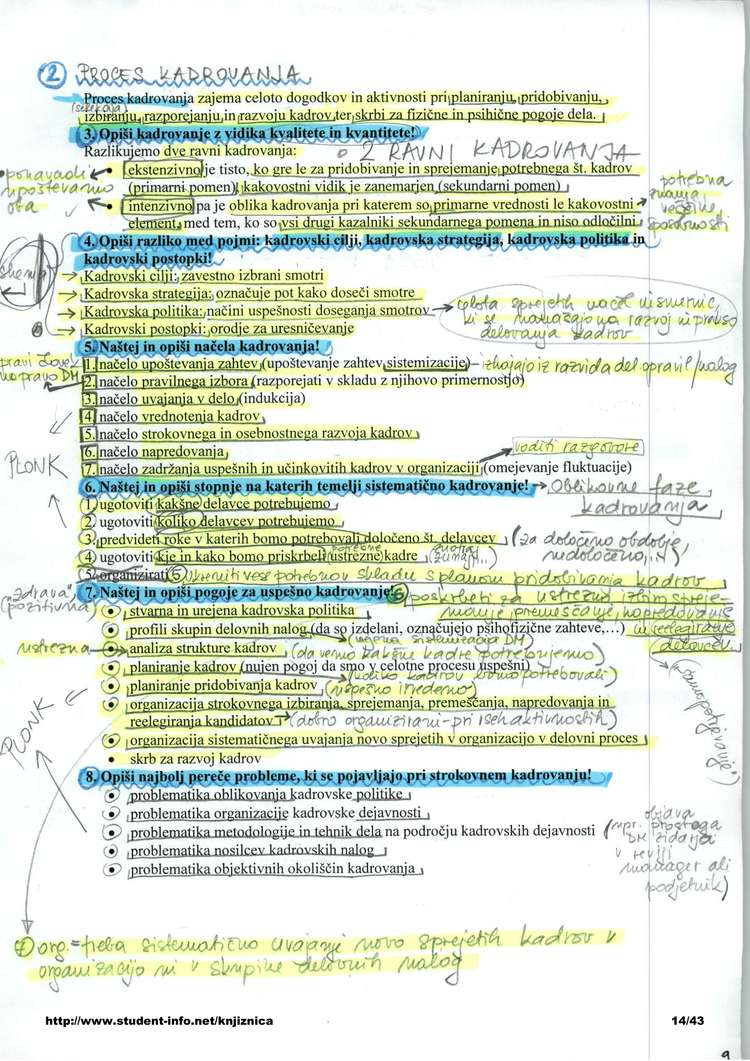 2 PROCES KADROVANJA
Proces kadrovanja zajema celoto dogodkov in aktivnosti pri planiranju, pridobivanju,
(selekcija)
izbiranju, razporejanju in razvoju kadrov ter skrbi za fizične in psihične pogoje dela.
3. Opiši kadrovanje z vidika kvalitete in kvantitete!
Razlikujemo dve ravni kadrovanja:
2 RAVNI KADROVANJA
• ekstenzivno je tisto, ko gre le za pridobivanje in sprejemanje potrebnega št. kadrov
(primarni pomen), kakovostni vidik je zanemarjen (sekundarni pomen)
• intenzivno pa je oblika kadrovanja pri katerem so primarne vrednosti le kakovostni
element, med tem, ko so vsi drugi kazalniki sekundarnega pomena in niso odločilni
ponavadi
upoštevamo
oba
potrebna
znanja,
veščine,
sposobnosti
4. Opiši razliko med pojmi: kadrovski cilji, kadrovska strategija, kadrovska politika in
kadrovski postopki!
shema
→ Kadrovski cilji: zavestno izbrani smotri
→ Kadrovska strategija: označuje pot kako doseči smotre
→ Kadrovska politika: načini uspešnosti doseganja smotrov
→ Kadrovski postopki: orodje za uresničevanje
celota sprejetih načel in smernic,
ki se nanašajo na razvoj in prakso
delovanja kadrov
5. Naštej in opiši načela kadrovanja!
1. načelo upoštevanja zahtev (upoštevanje zahtev sistemizacije) – izhajajo iz razvida del opravil/nalog
pravi človek
na pravo DM
2. načelo pravilnega izbora (razporejati v skladu z njihovo primernostjo)
3. načelo uvajanja v delo (indukcija)
4. načelo vrednotenja kadrov
5. načelo strokovnega in osebnostnega razvoja kadrov
6. načelo napredovanja
voditi razgovore
7. načelo zadržanja uspešnih in učinkovitih kadrov v organizaciji (omejevanje fluktuacije)
PLONK
6. Naštej in opiši stopnje na katerih temelji sistematično kadrovanje! → Oblikovne faze
kadrovanja
1. ugotoviti kakšne delavce potrebujemo
2. ugotoviti koliko delavcev potrebujemo
3. predvideti roke v katerih bomo potrebovali določeno št. delavcev (za določeno obdobje,
nedoločeno,..)
4. ugotoviti kje in kako bomo priskrbeli ustrezne kadre
(notraj,
zunaj..)
5. organizirati 5 ukreniti vse potrebno v skladu s planom pridobivanja kadrov
7. Naštej in opiši pogoje za uspešno kadrovanje!
6 poskrbeti za ustrezno izbiro, sprejemanje, premeščanje, napredovanje
in reelegiranje
delavcev
(samopotrjevanje")
"zdrava"
(pozitivna)
• stvarna in urejena kadrovska politika
• profili skupin delovnih nalog (da so izdelani, označujejo psihofizične zahteve,…)
sistemizacija DM)
ustrezna
• analiza strukture kadrov (da vemo kakšne kadre potrebujemo)
• planiranje kadrov (nujen pogoj da smo v celotne procesu uspešni)
(koliko kadrov bomo potrebovali)
• planiranje pridobivanja kadrov (uspešno izvedeno)
• organizacija strokovnega izbiranja, sprejemanja, premeščanja, napredovanja in
reelegiranja kandidatov → (dobro organizirani - pri vseh aktivnostih)
• organizacija sistematičnega uvajanja novo sprejetih v organizacijo v delovni proces
• skrb za razvoj kadrov
PLONK
8. Opiši najbolj pereče probleme, ki se pojavljajo pri strokovnem kadrovanju!
• problematika oblikovanja kadrovske politike
• problematika organizacije kadrovske dejavnosti
• problematika metodologije in tehnik dela na področju kadrovskih dejavnosti
• problematika nosilcev kadrovskih nalog
• problematika objektivnih okoliščin kadrovanja
objava
(npr. prostega
DM zidarja
v reviji
manager ali
podjetnik)
7 org. = treba sistematično uvajanje novo sprejetih kadrov v
organizacijo in v skupine delovnih nalog
http://www.student-info.net/knjiznica
14/43
9